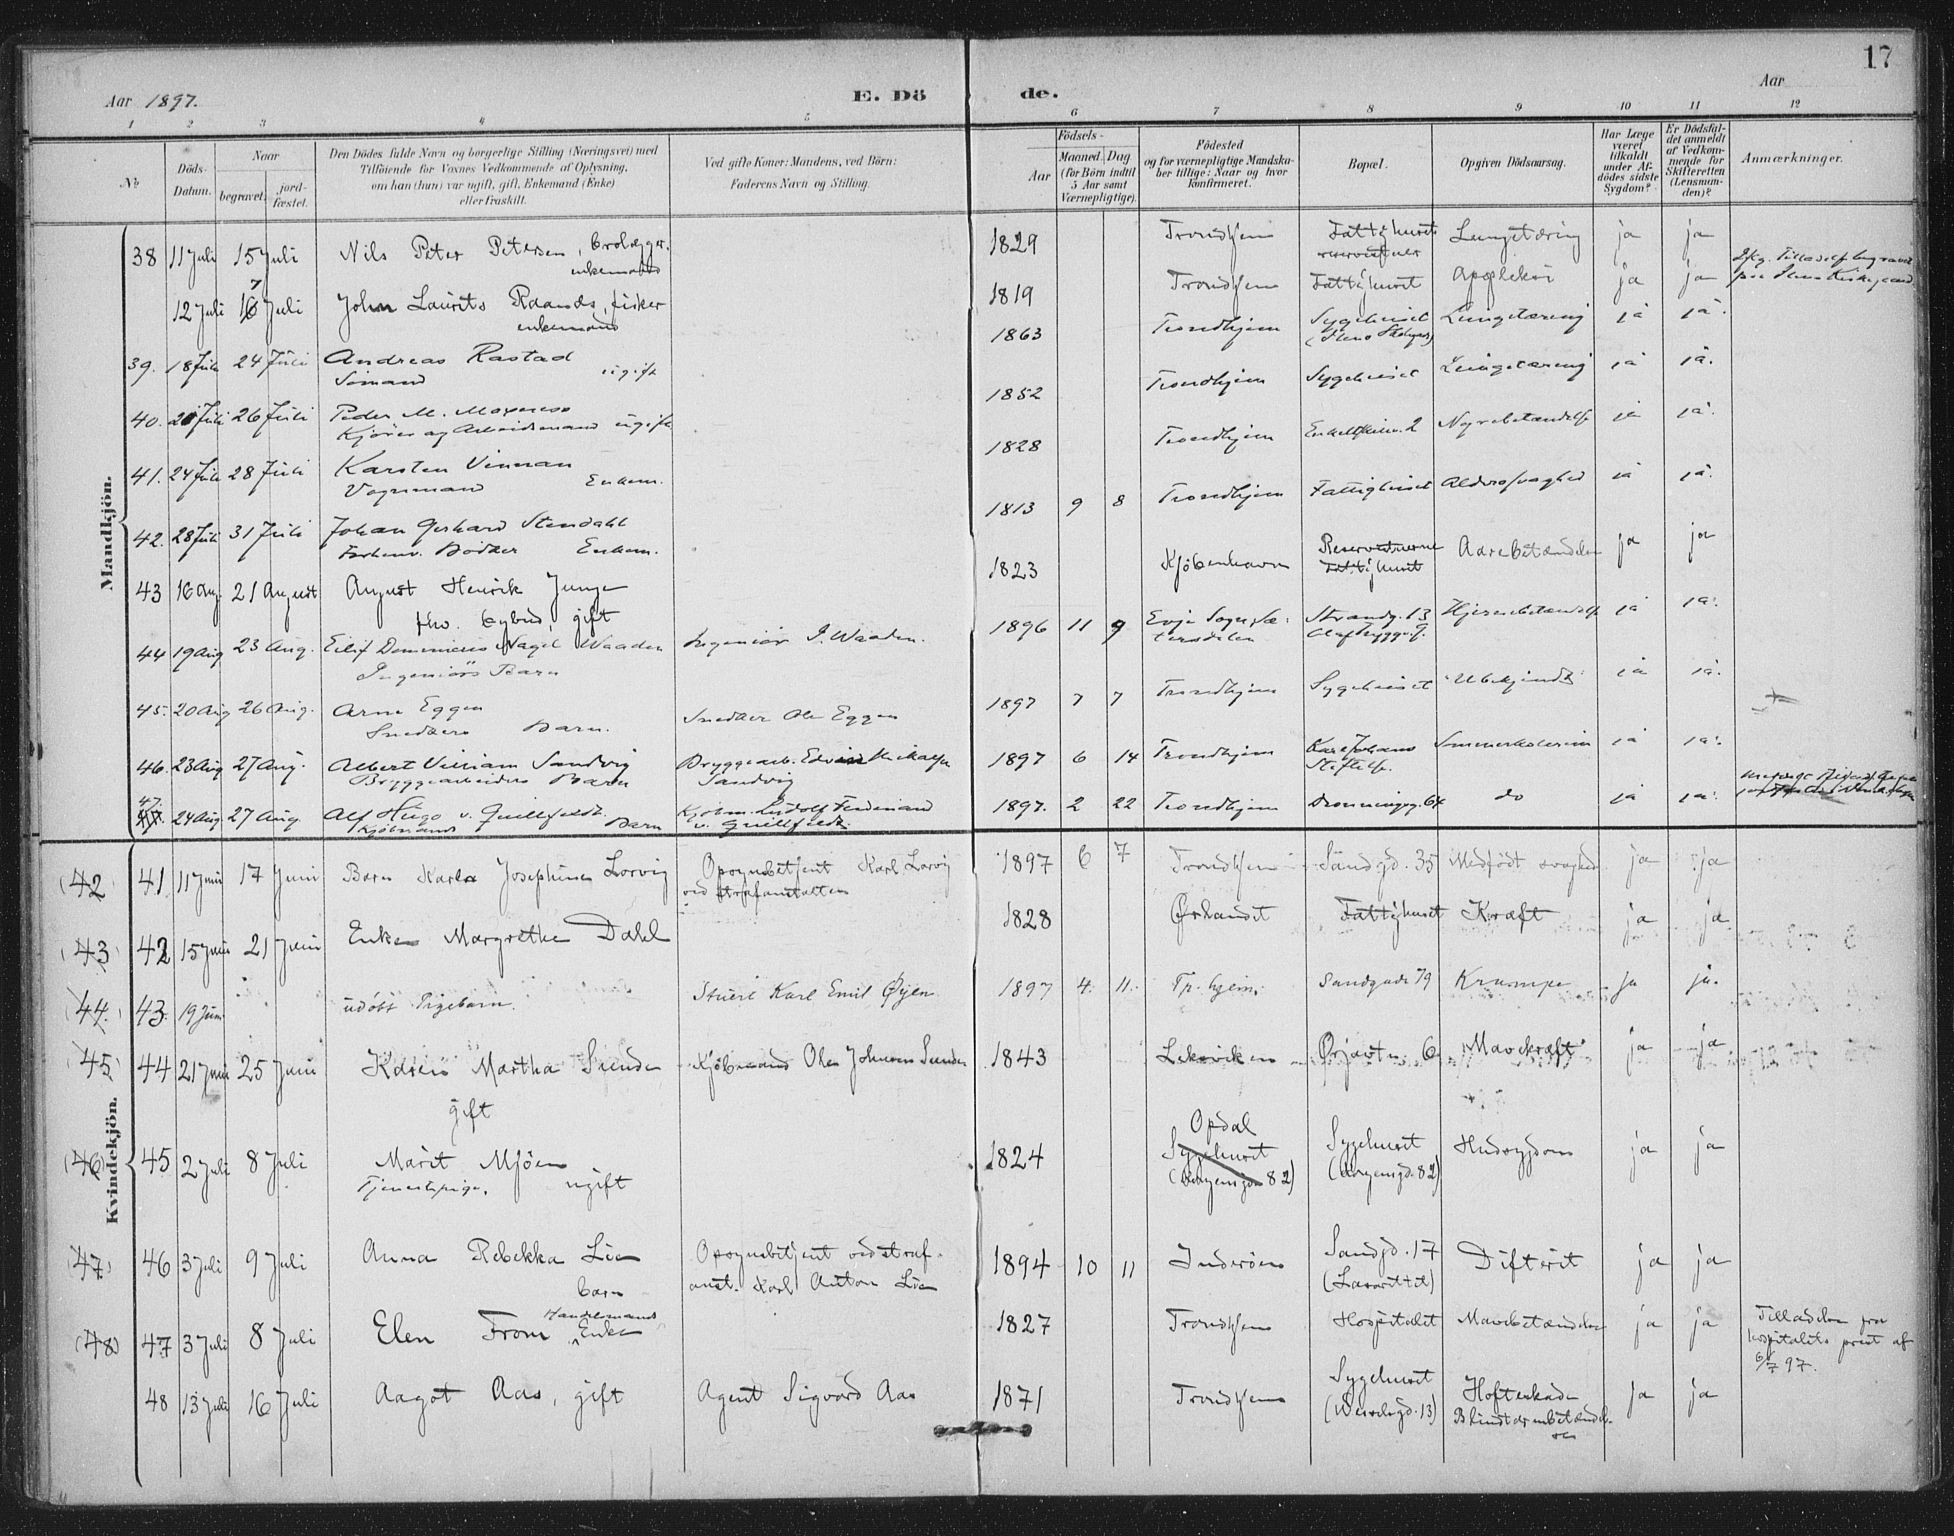 17
Aar 1897.
E. Dö
de.
Aar
1 2 3 4 5 6 7 8 9 10 11 12
No
Döds-
Datum.
Naar
begravet.
jord-
fæstet.
Den Dödes fulde Navn og borgerlige Stilling (Næringsvei) med
Tilföiende for Voxnes Vedkommende af Oplysning,
om han (hun) var ugift, gift, Enkemand (Enke)
eller fraskilt.
Ved gifte Koner: Mandens, ved Börn:
Faderens Navn og Stilling.
Födsels-
Aar
Maaned. Dag
(for Börn indtil
5 Aar samt
Værnepligtige).
Födested
og for værnepligtige Mandska-
ber tillige: Naar og hvor
konfirmeret.
Bopæl.
Opgiven Dödsaarsag.
Har Læge
været
tilkaldt
under Af-
dödes sidste
Sygdom?
Er Dödsfal-
det anmeldt
af Vedkom-
mende for
Skifteretten
(Lensman-
den)?
Anmærkninger.
Mandkjön.
38 11 Juli 15 Juli Nils Peter Petersen, brolægger, enkemand 1829 Trondhjem Fattighuset Lungetæring ja ja
12 Juli 16 Juli John Laurits Raands, fisker enkemand 1819 Trondhjem Fattighuset Apopleksi ja ja
39. 18 Juli 24 Juli Andreas Rastad Sömand ugift 1863 Trondhjem Sygehuset Lungetæring ja ja.
40. 20 Juli 26 Juli Peder M. Kjörer og Arbeidsmand ugift 1852 Trondhjem Sygehuset Lungetæring ja ja.
41. 24 Juli 28 Juli Karsten Vinnan Vognmand Enkem. 1828 Trondhjem 2 Nyrebetændelse ja ja.
42. 28 Juli 31 Juli Johan Gerhard Stendahl Forhenv. Bödker Enkem. 1813 9 8 Trondhjem Fattighuset Alderssvaghed ja ja.
43 16 Aug 21 August August Henrik Junge fhv. bybud, gift 1823 Kjöbenhavn Fattighuset Aarebetændelse ja ja
44 19 Aug 23 Aug. Eilif Nagel Waaden Ingeniörs Barn Ingeniör I. Waaden. 1896 11 9 Evje Sogn Sæ- tersdalen Strandg. 13 Olaf Trygg.g. Hjernebetændelse ja ja.
45. 20 Aug 26 Aug. Arne Eggen Snedkers Barn. Snedker Ole Eggen 1897 7 7 Trondhjem Sygehuset Ubekjendt ja ja.
46. 23 Aug 27 Aug. Albert William Sandvig Bryggearbeiders Barn Bryggearb. Edvin Mikalsen Sandvig 1897 6 14 Trondhjem Karl Johans Stiftelse Sommerkolerin ja ja.
47. 24 Aug 27 Aug. Alf Hugo v. Quillfeldt. Kjöbmands Barn Kjöbm. Ludolf Ferdinand v. Quillfeldt. 1897. 2 22 Trondhjem Dronningsg. 64 do ja ja.
Kvindekjön.
(42) 41 11 Juni 17 Juni Barn Karla Josephine Lorvig Opsynsbetjent Karl Lorvig ved strafanstalten 1897 6 7 Trondhjem Sandgd. 35 Medfödt svaghed ja ja
(43) 42 15 Juni 21 Juni Enke Margrethe Dahl 1828 Ørlandet Fattighuset Kræft ja ja
(44.) 43. 19 Juni udöbt Pigebarn. Stuert Karl Emil Øyen 1897 4. 11. Tr.hjem. Sandgade 79 Krampe ja ja.
(45) 44 21 Juni 25 Juni Karen Martha Sunde gift Kjöbmand Ole Johnsen Sunde 1843 Leksviken 6 Mavekræft ja ja
(46) 45 2 Juli 8 Juli Marit Mjöen Tjenestepige, ugift 1824 Opdal Sygehuset 82) Sygehuset 82) Hudsygdom ja ja
(47) 46 3 Juli 9 Juli Anna Rebekka Lie barn Opsynsbetjent ved straf- anst. Karl Anton Lie 1894 10 11 Inderöen Sandgd. 17 (Lasarettet) Difterit ja ja
(48) 47 3 Juli 8 Juli Elen From Handelsmands Enke 1827 Trondhjem Hospitalet Mavebetændelse ja ja Tilladelse fra hospitalets prest af 6/7 97.
48 13 Juli 16 Juli Aagot Aas, gift Agent Sigvard Aas 1871 Trondhjem Sygehuset 13) Hofteskade Blindtarmbetændel- se ja ja